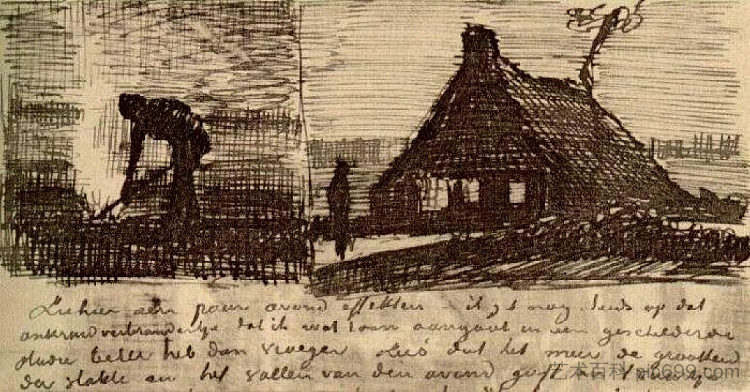 Ziehier een paar avond effekten ik zit nog steeds op dat
onkruidverbrandertje dat ik wat toon aangaat in een geschilderde
studie beter heb dan vroeger dat het meer de grootheid
der vlakte en het vallen van den avond
艺术百科